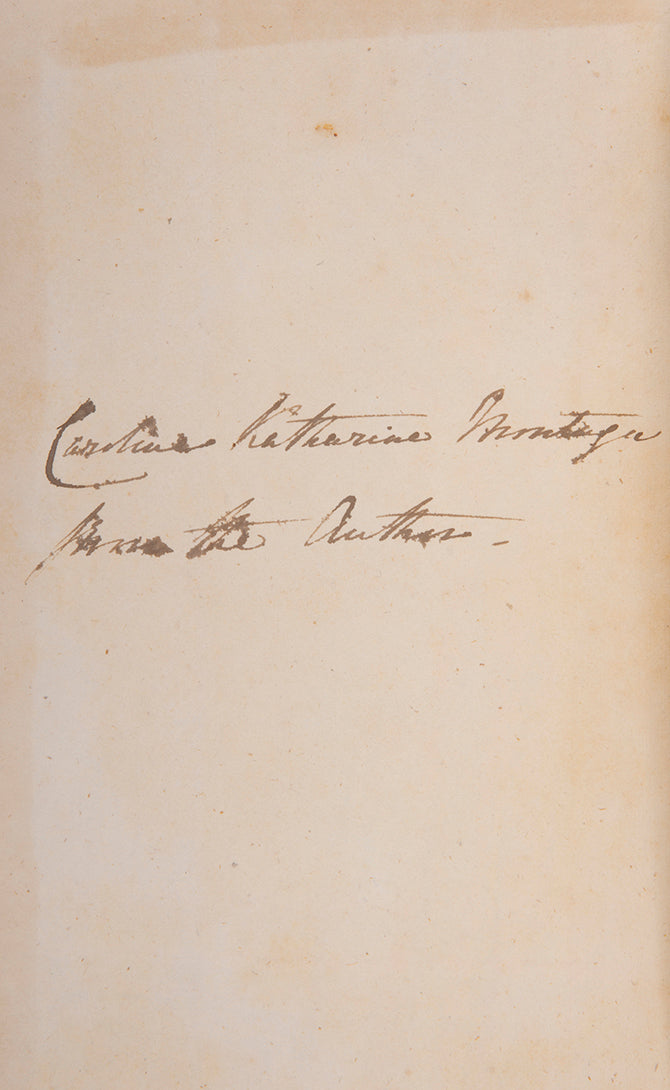 Caroline Katharine Montagu
from the Author -